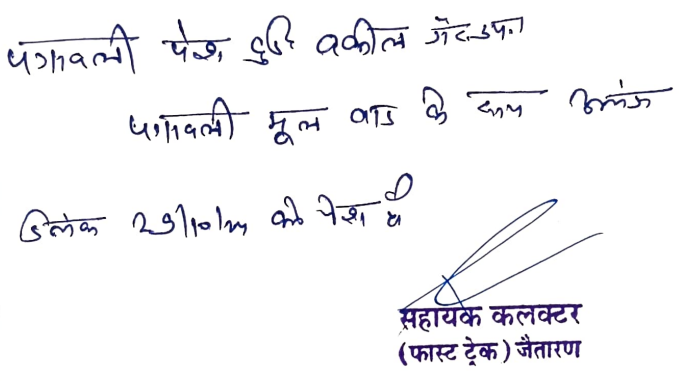 पत्रावली पेश हुई वकील
पत्रावली मूल वाद के साथ
दिनांक 29/10/ को पेश हो
सहायक कलक्टर
(फास्ट ट्रेक) जैतारण